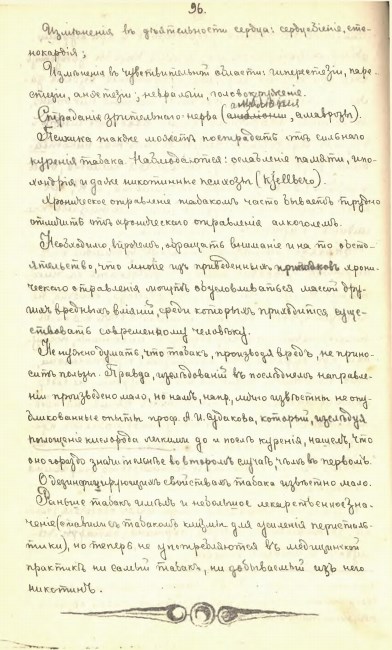 96.
Измѣненія въ дѣятельности сердца: сердцебіеніе, сте-
нокардія;
Измѣненія въ чувствительной области: гиперестезіи, паре-
стезіи, анэстезіи; невралгіи, головокруженіе.
амбліопія
Страданія зрительнаго нерва (амаврозъ).
Психика также можетъ пострадать отъ сильнаго
куренія табака. Наблюдаются: ослабленіе памяти, ипо-
хондрія и даже никотинные психозы (Kjellberg).
Хроническое отравленіе табакомъ часто бываетъ трудно
отличить отъ хроническаго отравленія алкоголемъ.
Необходимо, впрочемъ, обращать вниманіе и на то обсто-
ятельство, что многіе изъ приведенныхъ признаковъ хрони-
ческаго отравленія могутъ обусловливаться массой дру-
гихъ вредныхъ вліяній, среди которыхъ приходится суще-
ствовать современному человѣку.
Не нужно думать, что табакъ, производя вредъ, не прино-
ситъ пользы. Правда, изслѣдованій въ послѣднемъ направле-
ніи произведено мало, но намъ, напр., лично извѣстны не опу-
бликованные опыты проф. А. И. Судакова, который, изслѣдуя
поглощеніе кислорода легкими до и послѣ куренія, нашелъ, что
оно гораздо значительнѣе во второмъ случаѣ, чѣмъ въ первомъ.
О дезинфицирующихъ свойствахъ табака извѣстно мало.
Раньше табакъ имѣлъ и небольшое лекарственное зна-
ченіе (ставились табакомъ клизмы для усиленія перисталь-
тики), но теперь не употребляются въ медицинской
практикѣ ни самый табакъ, ни добываемый изъ него
никотинъ.